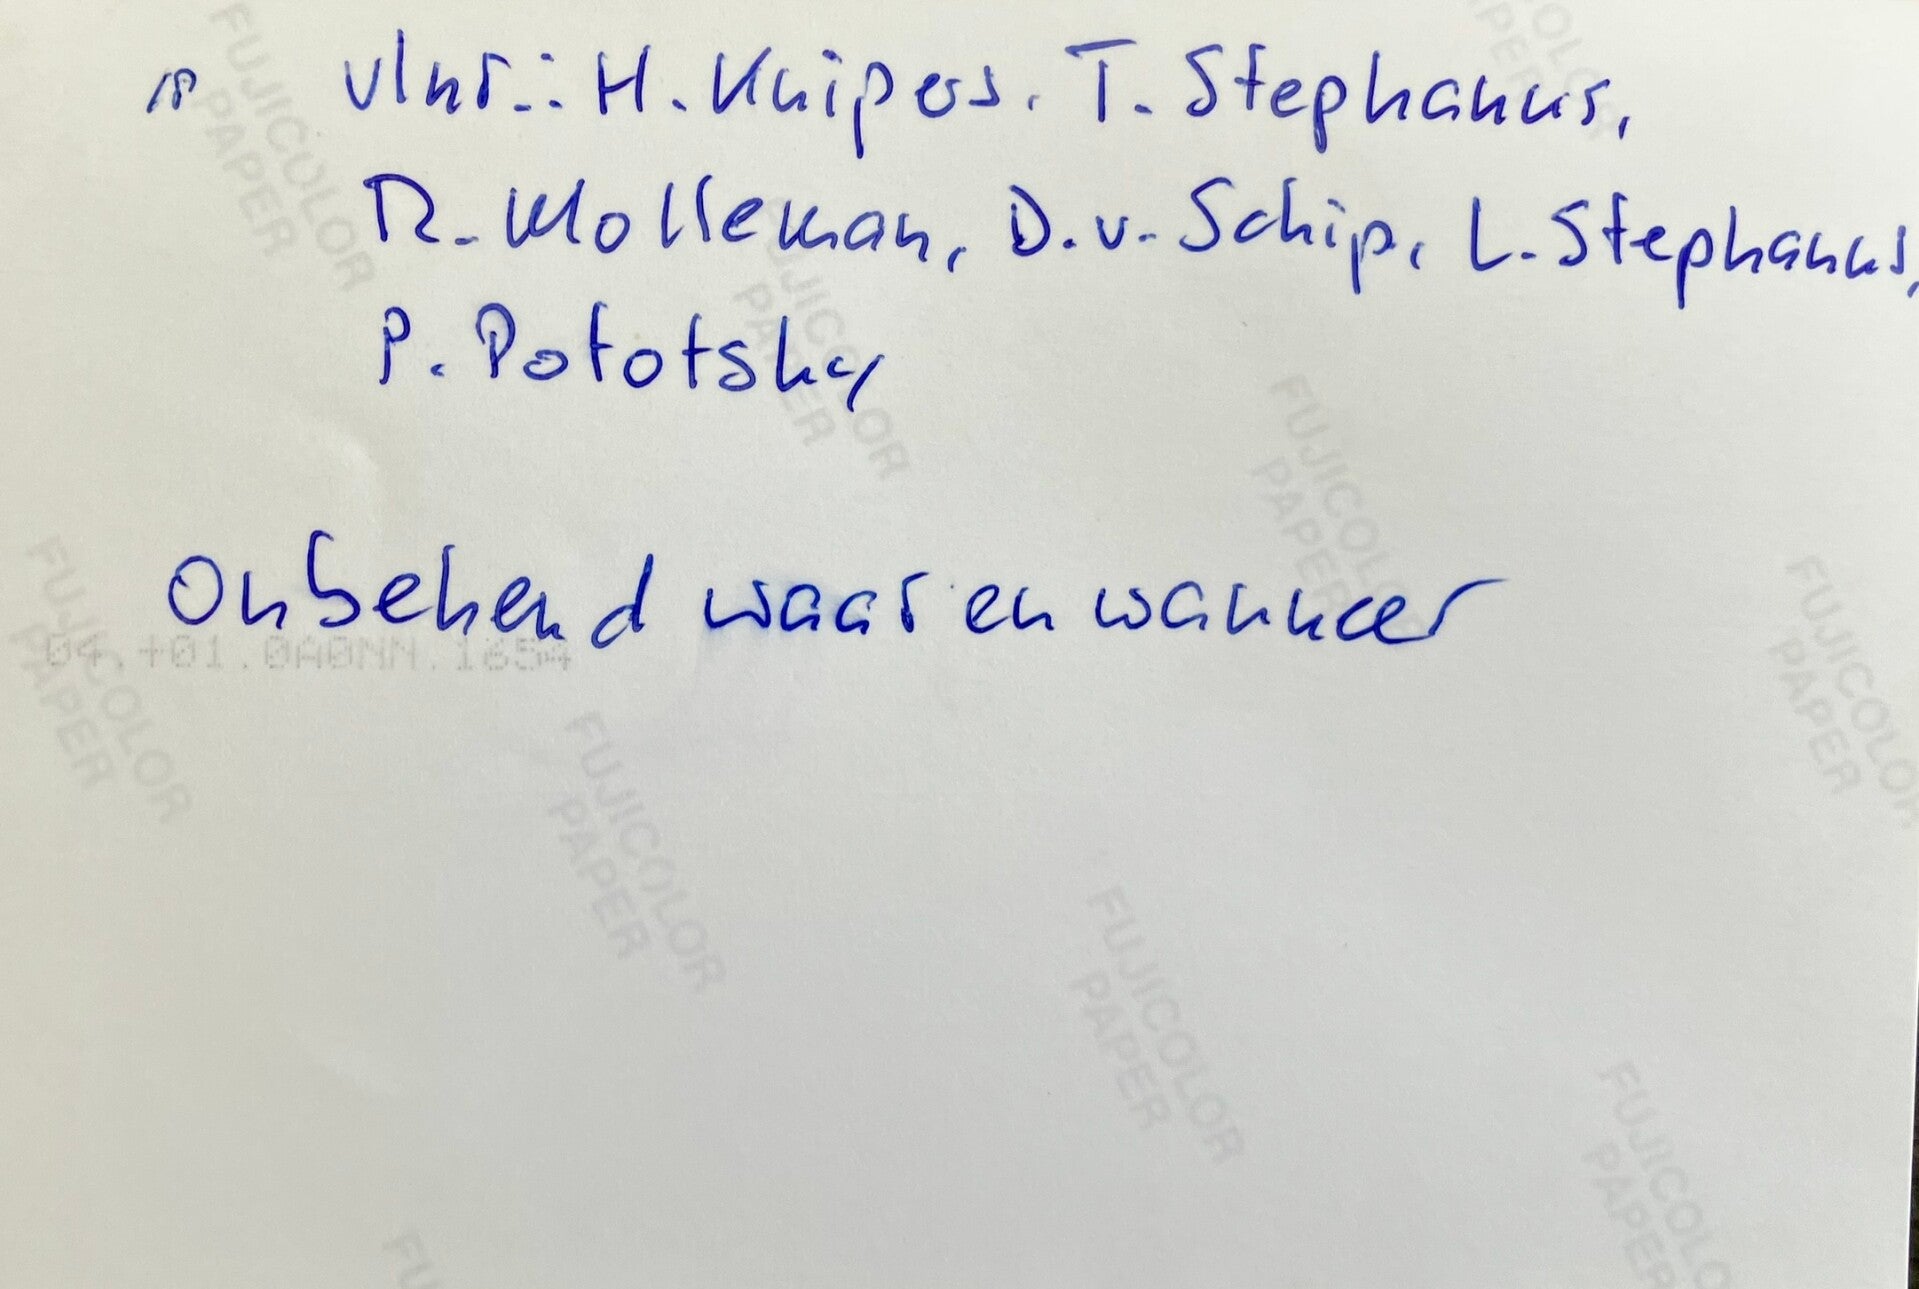 18 vlnr.: H. Kuipers, T. Stephanus,
R. Molleman, D. v. Schip, L. Stephanus,
P. Pototsky
Onbekend waar en wanneer
04.+01.0A0NN.1654
FUJICOLOR PAPER
FUJICOLOR PAPER
FUJICOLOR PAPER
FUJICOLOR PAPER
FUJICOLOR PAPER
FUJICOLOR PAPER
FUJICOLOR PAPER
FUJICOLOR PAPER
FUJICOLOR PAPER